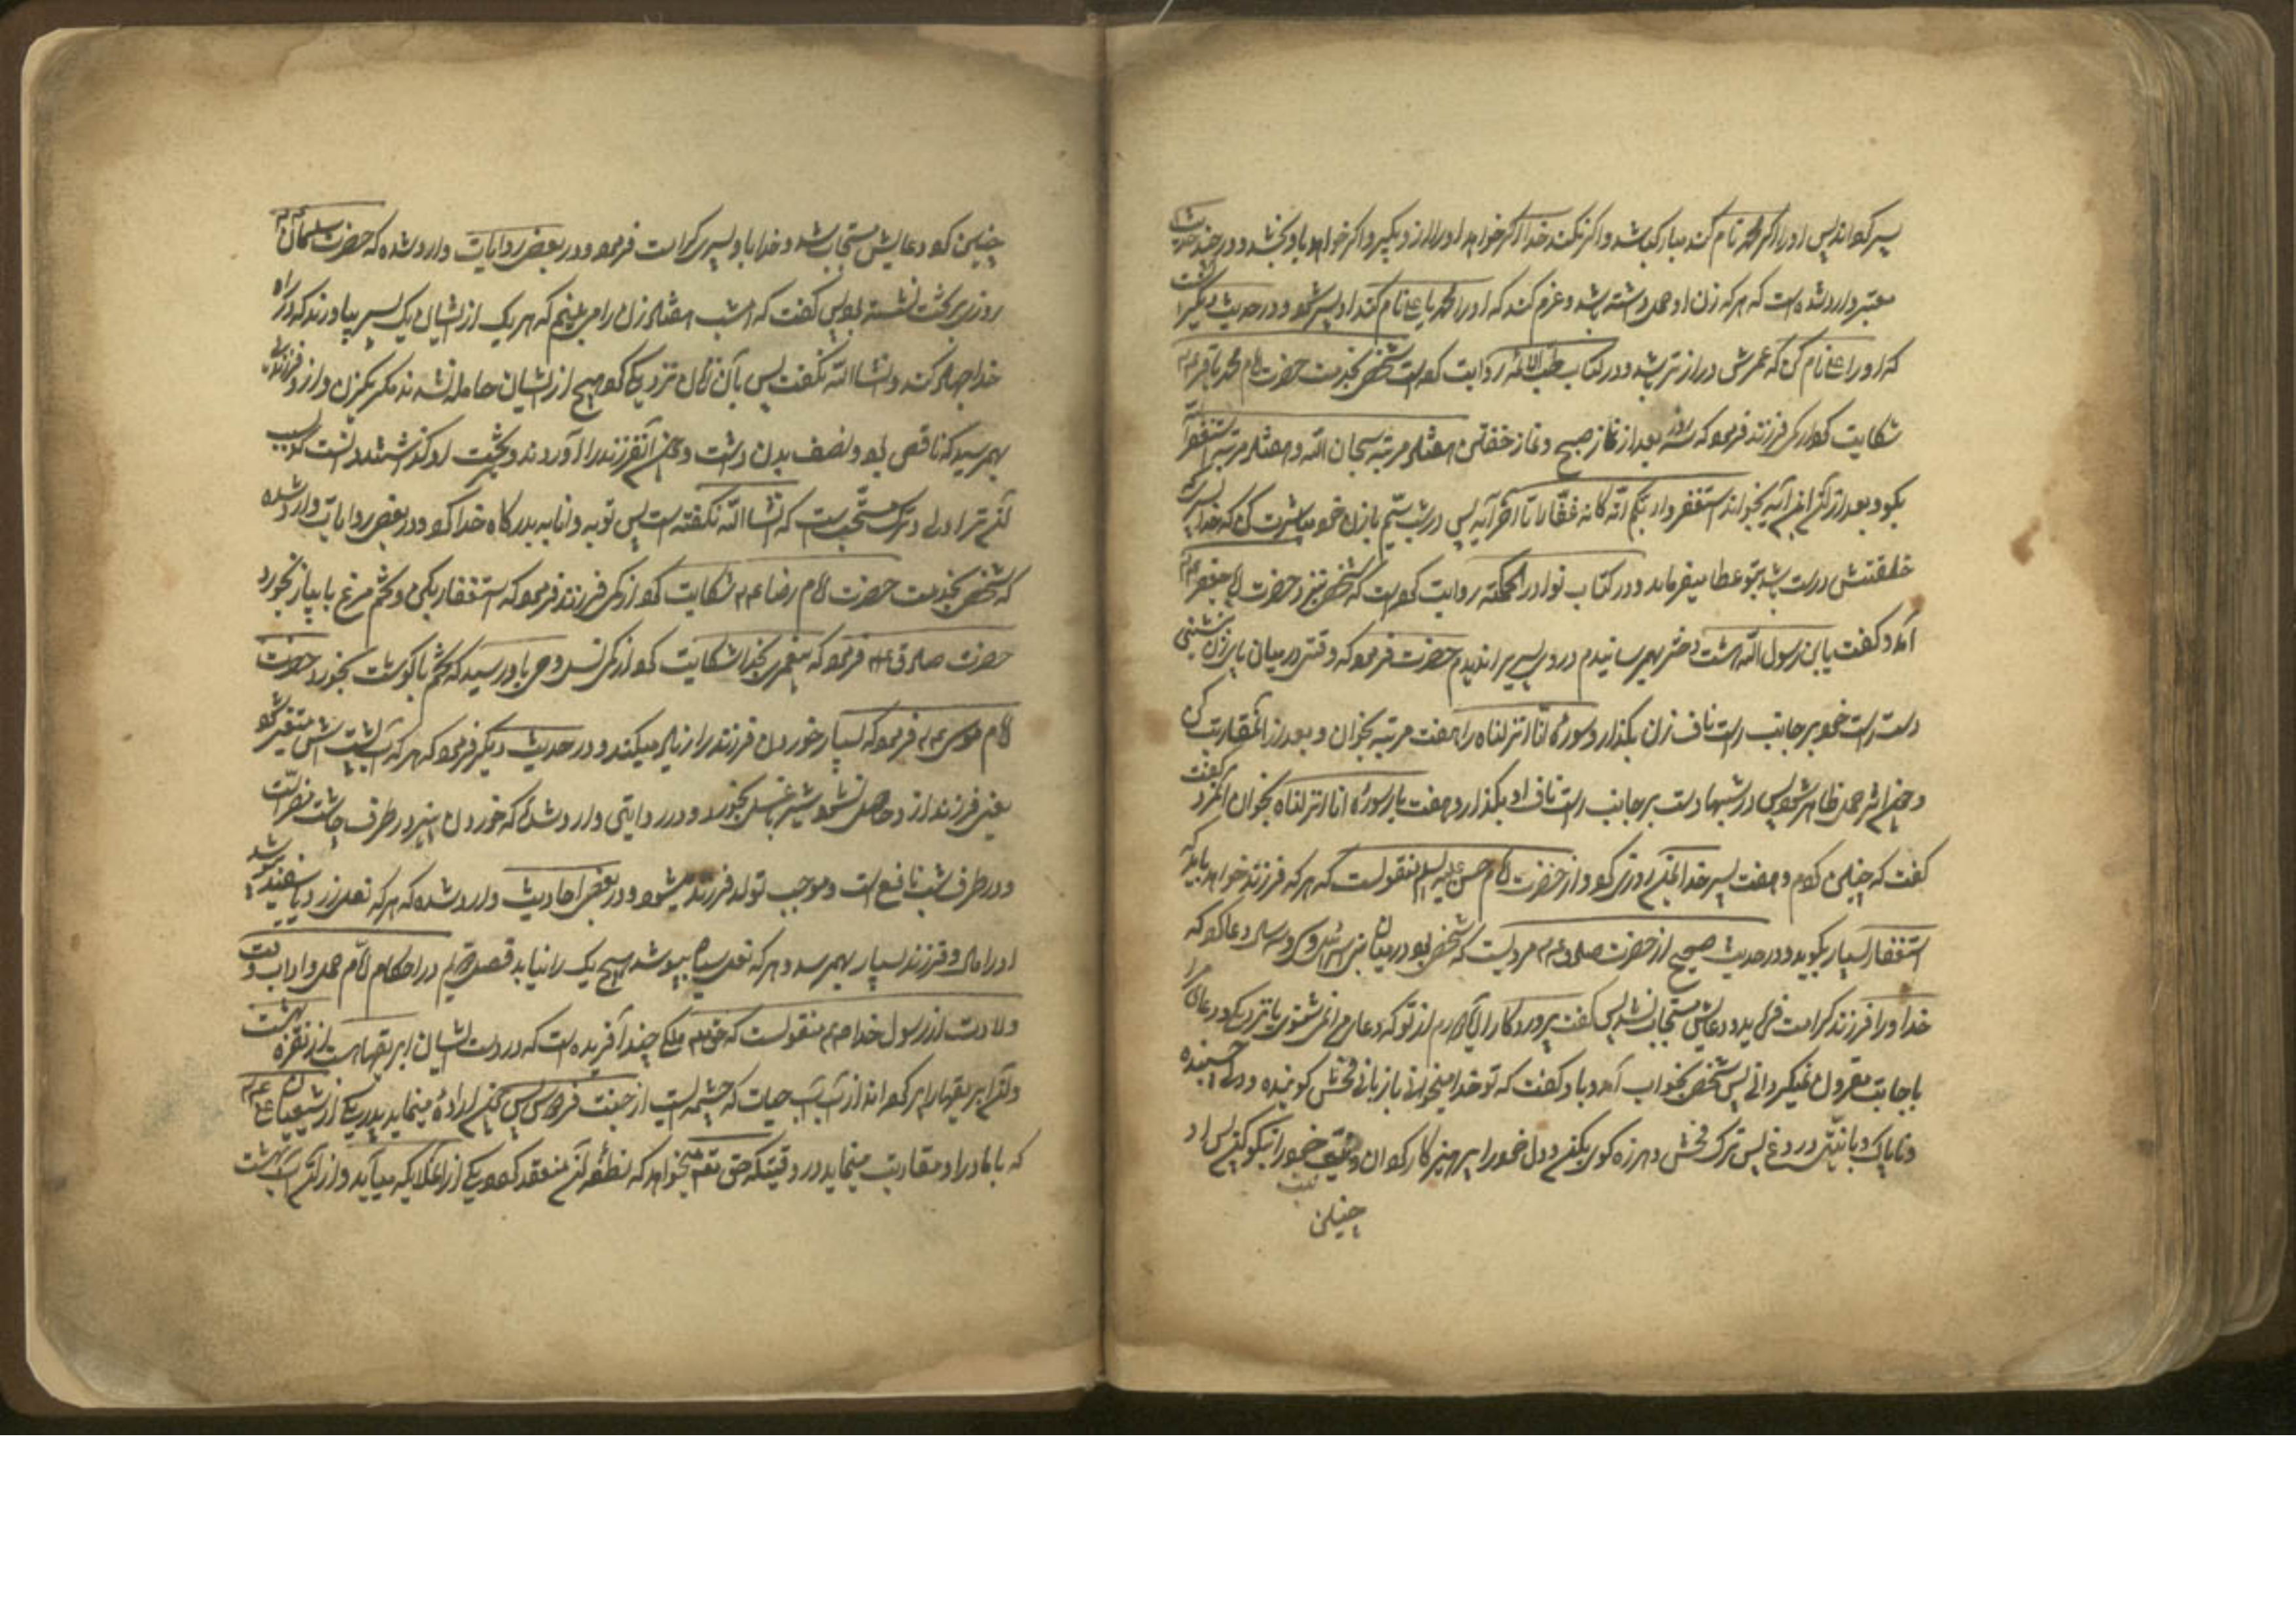 پسر گرداند پس او را اگر محمد نام کند مبارک باشد و اگر نکند خدا اگر خواهد او را از او بگیرد و اگر خواهد باو بخشد و در چند حدیث
معتبر وارد شده است که هر که زن او حمل داشته باشد و عزم کند که او را محمد یا علی نام کند او پسر شود و در حدیث دیگر است
که او را علی نام کن که عمرش درازتر باشد و در کتاب طب الائمه روایت کرده است شخصی بخدمت حضرت امام محمد باقر عم
شکایت کرد از کمی فرزند فرمود که سه روز بعد از نماز صبح و نماز خفتن هفتاد مرتبه سبحان الله و هفتاد مرتبه استغفر الله
بگو و بعد از آن این آیه بخواند استغفروا ربکم انه کان غفارا تا آخر آیه پس در شب سیم با زن خود مباشرت کن که خدا پسری که
خلقتش درست باشد بتو عطا میفرماید و در کتاب نوادر الحکمة روایت کرده است که شخصی نزد حضرت امام جعفر عم
آمد و گفت یابن رسول الله هشت دختر بهم رسانیدم و روی پسر را ندیدم حضرت فرمود که وقتی در میان پای زن نشینی
دست راست خود بر جانب راست ناف زن بگذار و سوره انا انزلناه را هفت مرتبه بخوان و بعد از آن مقاربت کن
و چون اثر حمل ظاهر شود پس در شبها دست بر جانب راست ناف او بگذار و هفت بار سوره انا انزلناه بخوان آن مرد گفت
گفت که چنین کردم و هفت پسر خدا بمن روزی کرد و از حضرت امام حسن علیه السلام منقولست که هر که فرزند خواهد باید که
استغفار بسیار بگوید و در حدیث صحیح از حضرت صادق عم مرویست که شخصی بود در میان بنی اسرائیل و سه سال دعا کرد که
خدا او را فرزند کرامت فرماید و دعایش مستجاب نشد پس گفت پروردگارا آیا من دورم از تو که دعای مرا نمی شنوی یا نزدیک و دعای مرا
باجابت مقرون نمیگردانی پس شخصی بخواب آمد و باو گفت که تو خدا را میخوانی با زبانی فحش گوینده و دلی چسبنده
و ناپاک و با نیتی دروغ پس ترک فحش و هرزه گوئی بکن و دل خود را پرهیزکار گردان و نیت خود را نیکو کن پس او
نیت
چنین
چنین کرد دعایش مستجاب شد و خدا باو پسری کرامت فرمود و در بعضی روایات وارد شده که حضرت سلیمان عم
روزی بر تخت نشسته بود پس گفت که امشب هفتاد زن را می بینم که هر یک از ایشان یک پسر بیاورند که در راه
خدا جهاد کند و انشاالله نگفت پس با آن زنان نزدیکی کرد هیچ از ایشان حامله نشدند مگر یکزن و از او فرزندی
بهم رسید که ناقص بود و نصف بدن داشت و چون آن فرزند را آوردند و بتخت او گذاشتند دانست که بسبب
آن ترک اولی و ترک مستحب است که انشا الله نگفته است پس توبه و انابه بدرگاه خدا کرد و در بعضی روایات وارد شده
که شخصی بخدمت حضرت امام رضا عم شکایت کرد از کمی فرزند فرمود که استغفار بکن و تخم مرغ با پیاز بخور و
حضرت صادق عم فرمود که پیغمبری بخدا شکایت کرد از کمی نسل وحی باو رسید که تخم با گوشت بخورد حضرت
امام موسی عم فرمود که بسیار خوردن فرزند را زیاد میکند و در حدیث دیگر فرمود که هر که آب پشتش متغیر شود
یعنی فرزند از او حاصل نشود شیر با عسل بخورد و در روایتی وارد شده که خوردن پنیر در طرف چاشت مضر است
و در طرف شب نافع است و موجب تولد فرزند میشود و در بعضی احادیث وارد شده که هر که نعل زرد یا سفید پوشد
او را مال و فرزند بسیار بهم رسد و هر که نعل سیاه بپوشد هیچ یک را نیابد فصل در احکام ایام حمل و اداب وقت
ولادت از رسول خدا ص منقولست که حقتعالی ملکی چند آفریده است که در دست ایشان ابریقهاست از نقره بهشت
و آن ابریقها را پر کرده اند از آب حیات که چشمه ایست از جنت فردوس پس چون اراده مینماید پدر یکی از شیعیان علی عم
که با مادر او مقاربت مینماید در وقتیکه حق تعم میخواهد که نطفه آن منعقد گردد یکی از ملایکه میآید و از آن آب بهشت